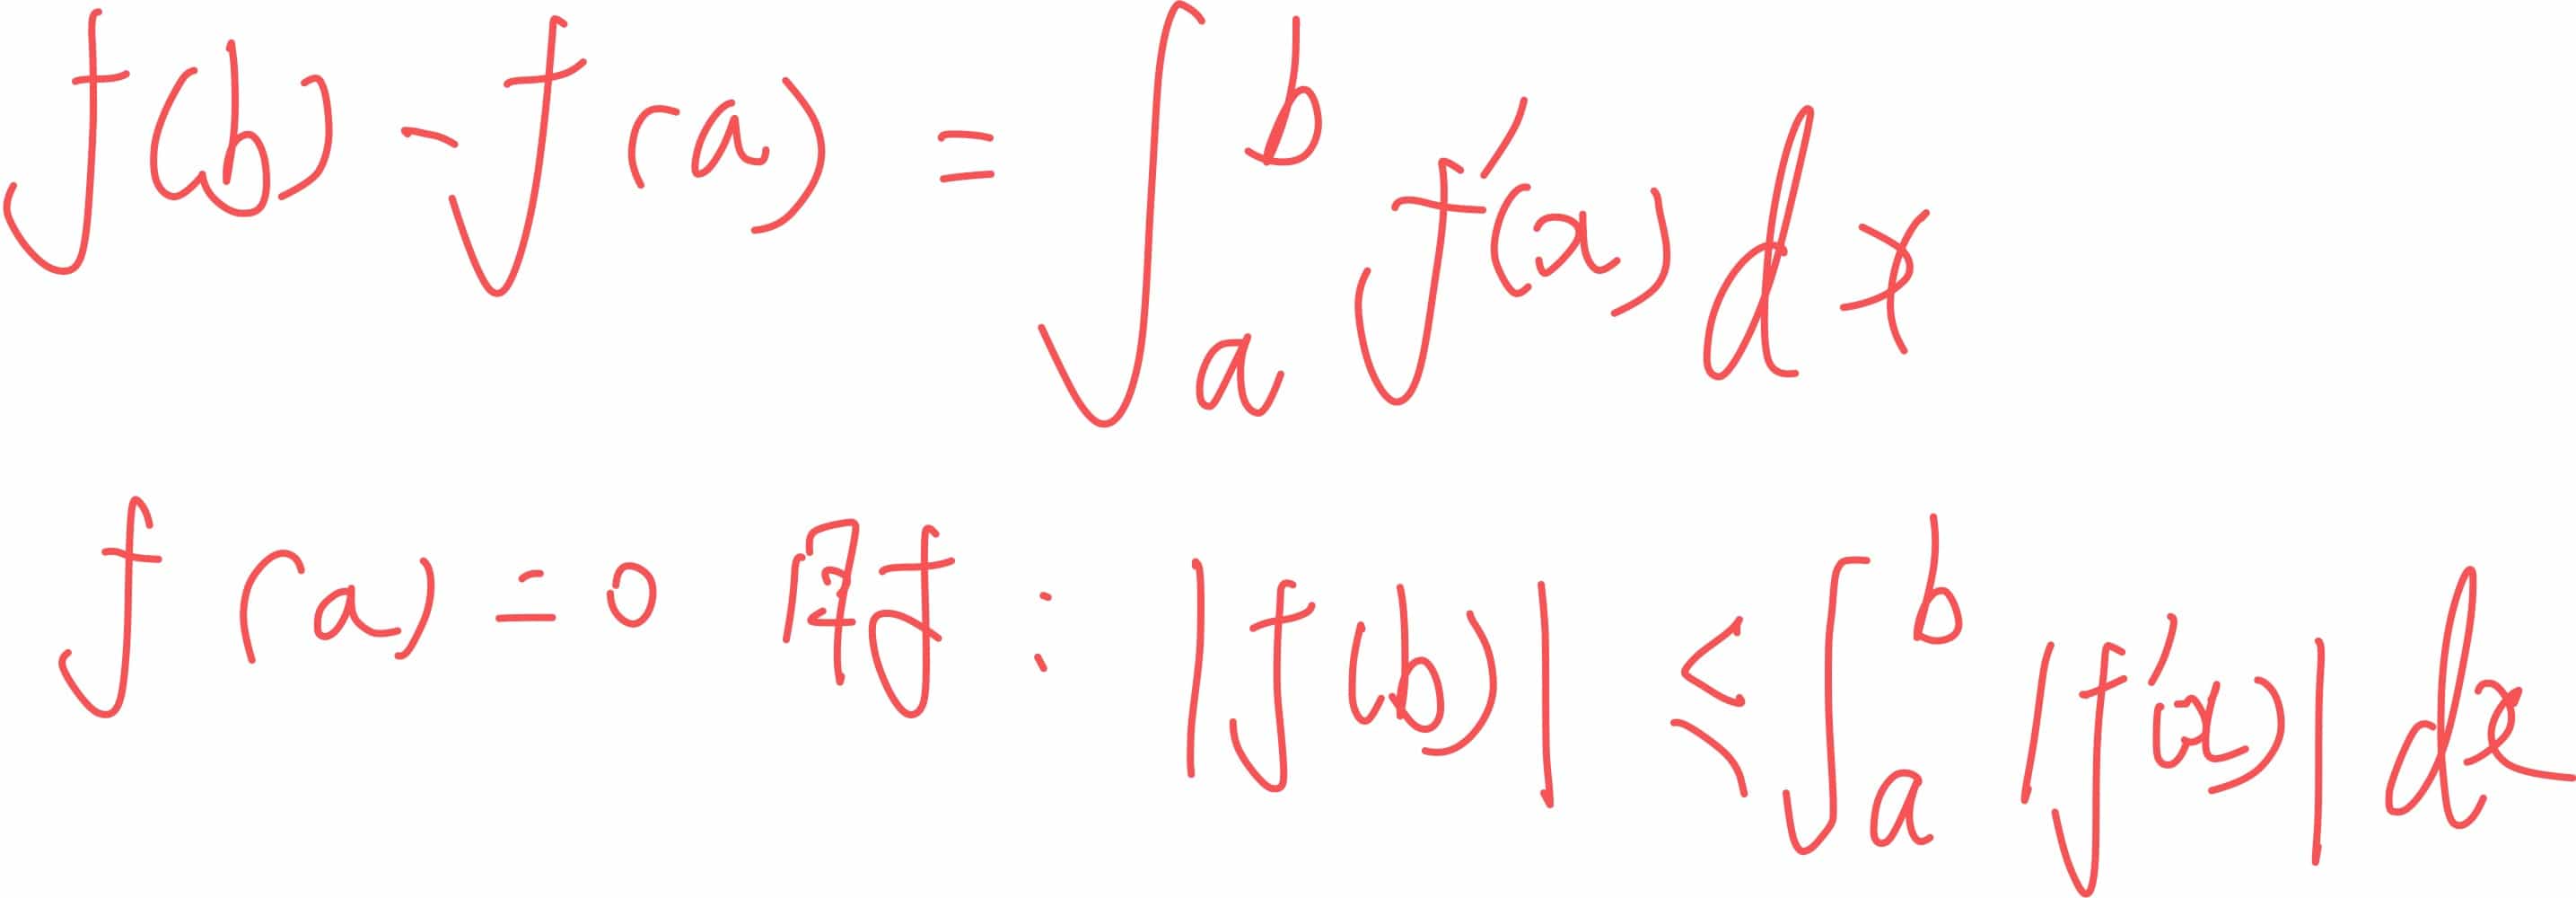 f(b) - f(a) = ∫_a^b f'(x) dx
f(a) = 0 时 : |f(b)| ≤ ∫_a^b |f'(x)| dx